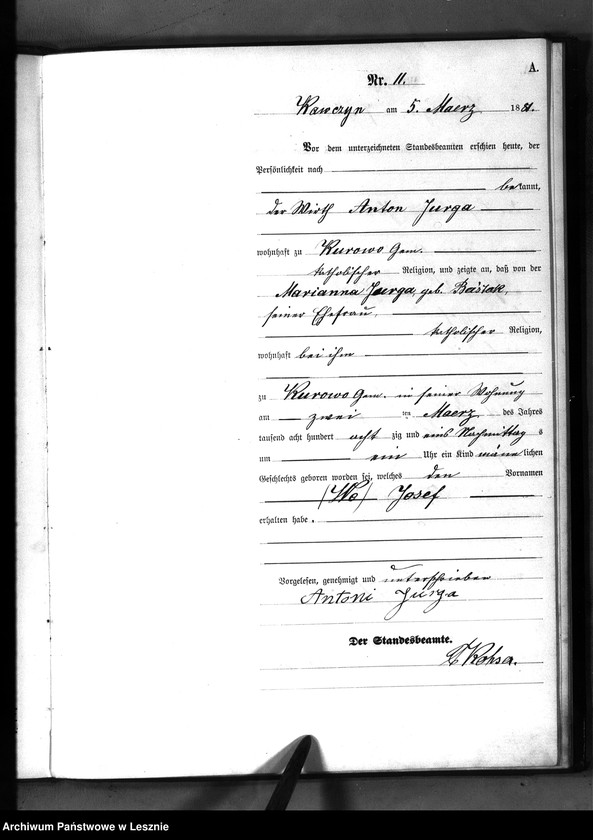 A.
Nr. 11.
Kawczyn am 5. Maerz 1881.
Vor dem unterzeichneten Standesbeamten erschien heute, der
Persönlichkeit nach
bekannt,
der Wirth Anton Jurga
wohnhaft zu Kurowo Gem.
katholischer Religion, und zeigte an, daß von der
Marianna Jurga, geb.
seiner Ehefrau,
katholischer Religion,
wohnhaft bei ihm
zu Kurowo Gem. in seiner Wohnung
am zwei ten Maerz des Jahres
tausend acht hundert acht zig und eins Nachmittag s
um ein Uhr ein Kind männlichen
Geschlechts geboren worden sei, welches den Vornamen
Josef
erhalten habe.
Vorgelesen, genehmigt und unterschrieben
Antoni Jurga
Der Standesbeamte.
Archiwum Państwowe w Lesznie